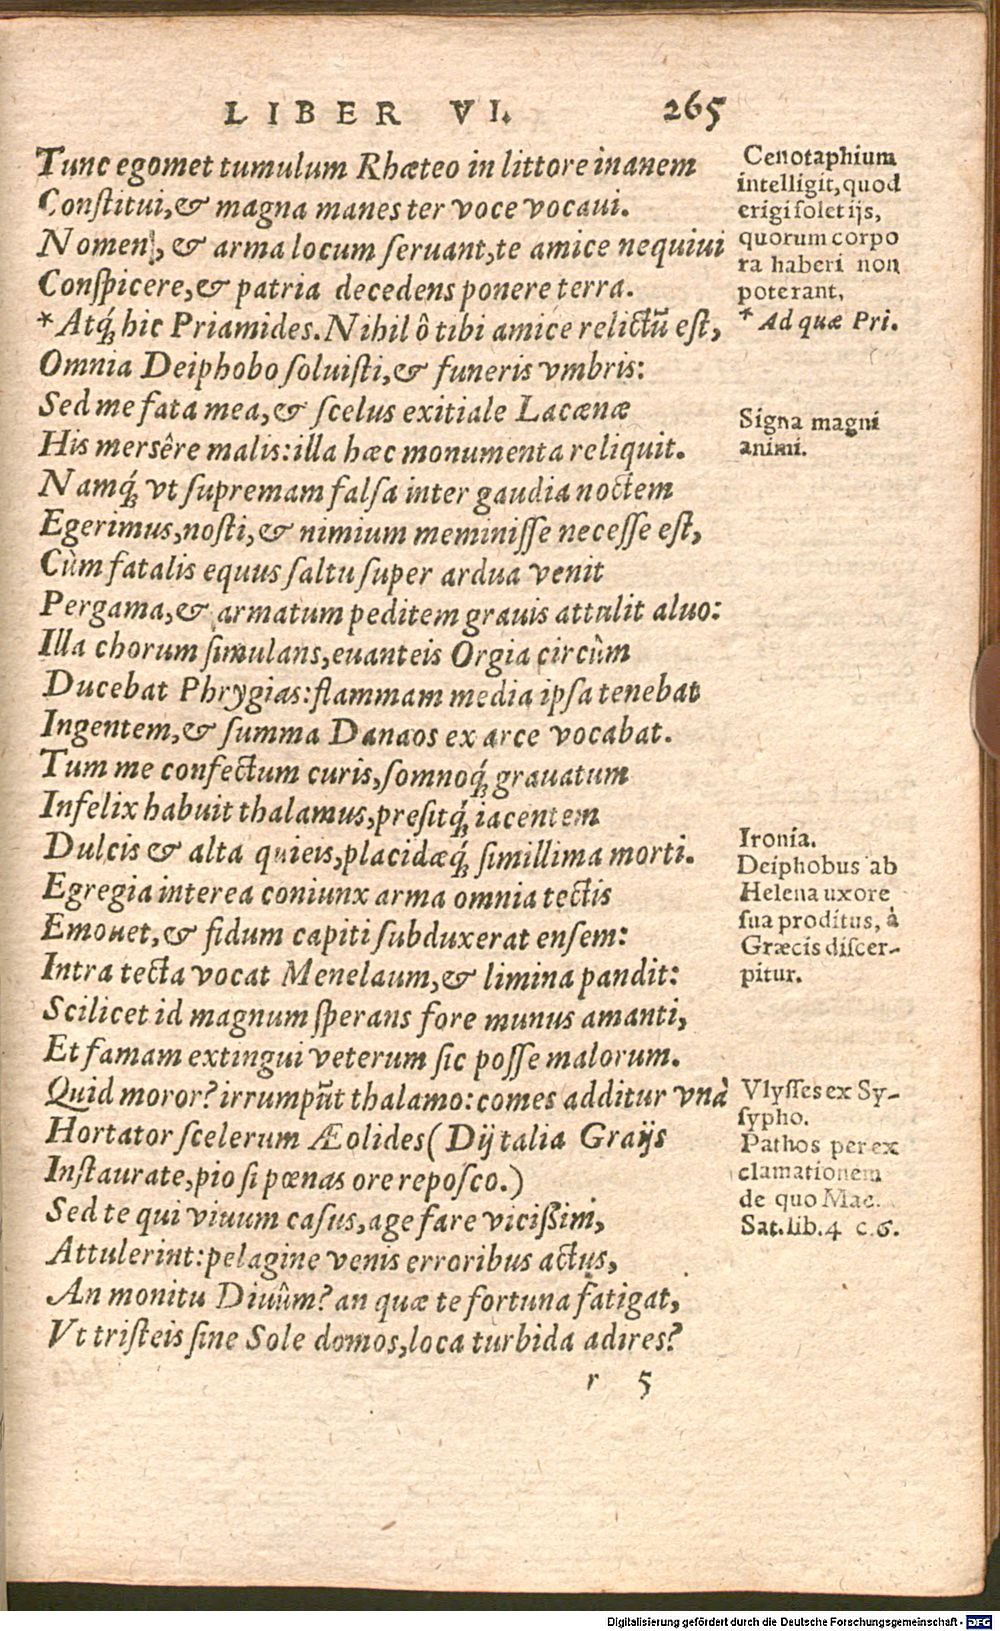 LIBER VI. 265
Tunc egomet tumulum Rhæteo in littore inanem
Conſtitui,& magna manes ter voce vocaui.
Nomen, & arma locum ſeruant,te amice nequiui
Conſpicere,& patria decedens ponere terra.
* Atq́; hic Priamides. Nihil ô tibi amice relictũ eſt,
Omnia Deiphobo ſoluiſti,& funeris vmbris:
Sed me fata mea,& ſcelus exitiale Lacænæ
His mersêre malis: illa hæc monumenta reliquit.
Namq́; vt ſupremam falſa inter gaudia noctem
Egerimus,noſti,& nimium meminiſſe neceſſe eſt,
Cùm fatalis equus ſaltu ſuper ardua venit
Pergama,& armatum peditem grauis attulit aluo:
Illa chorum ſimulans,euanteis Orgia circûm
Ducebat Phrygias: flammam media ipſa tenebat
Ingentem,& ſumma Danaos ex arce vocabat.
Tum me confectum curis,ſomnoq́; grauatum
Infelix habuit thalamus,preſitq́; iacentem
Dulcis & alta quies,placidæq́; ſimillima morti.
Egregia interea coniunx arma omnia tectis
Emouet,& fidum capiti ſubduxerat enſem:
Intra tecta vocat Menelaum,& limina pandit:
Scilicet id magnum ſperans fore munus amanti,
Et famam extingui veterum ſic poſſe malorum.
Quid moror? irrumpũt thalamo: comes additur vnà
Hortator ſcelerum Æolides( Dij talia Graijs
Inſtaurate,pio ſi pœnas ore repoſco.)
Sed te qui viuum caſus,age fare viciſsim,
Attulerint: pelagine venis erroribus actus,
An monitu Diuûm? an quæ te fortuna fatigat,
Vt triſteis ſine Sole domos,loca turbida adires?
r 5
Cenotaphium
intelligit,quod
erigi ſolet ijs,
quorum corpo
ra haberi non
poterant,
* Ad quæ Pri.
Signa magni
animi.
Ironia.
Deiphobus ab
Helena uxore
ſua proditus, à
Græcis diſcer-
pitur.
Vlyſſes ex Sy-
ſypho.
Pathos per ex
clamationem
de quo Mac.
Sat.lib.4 c.6.
Digitalisierung gefördert durch die Deutsche Forschungsgemeinschaft - DFG